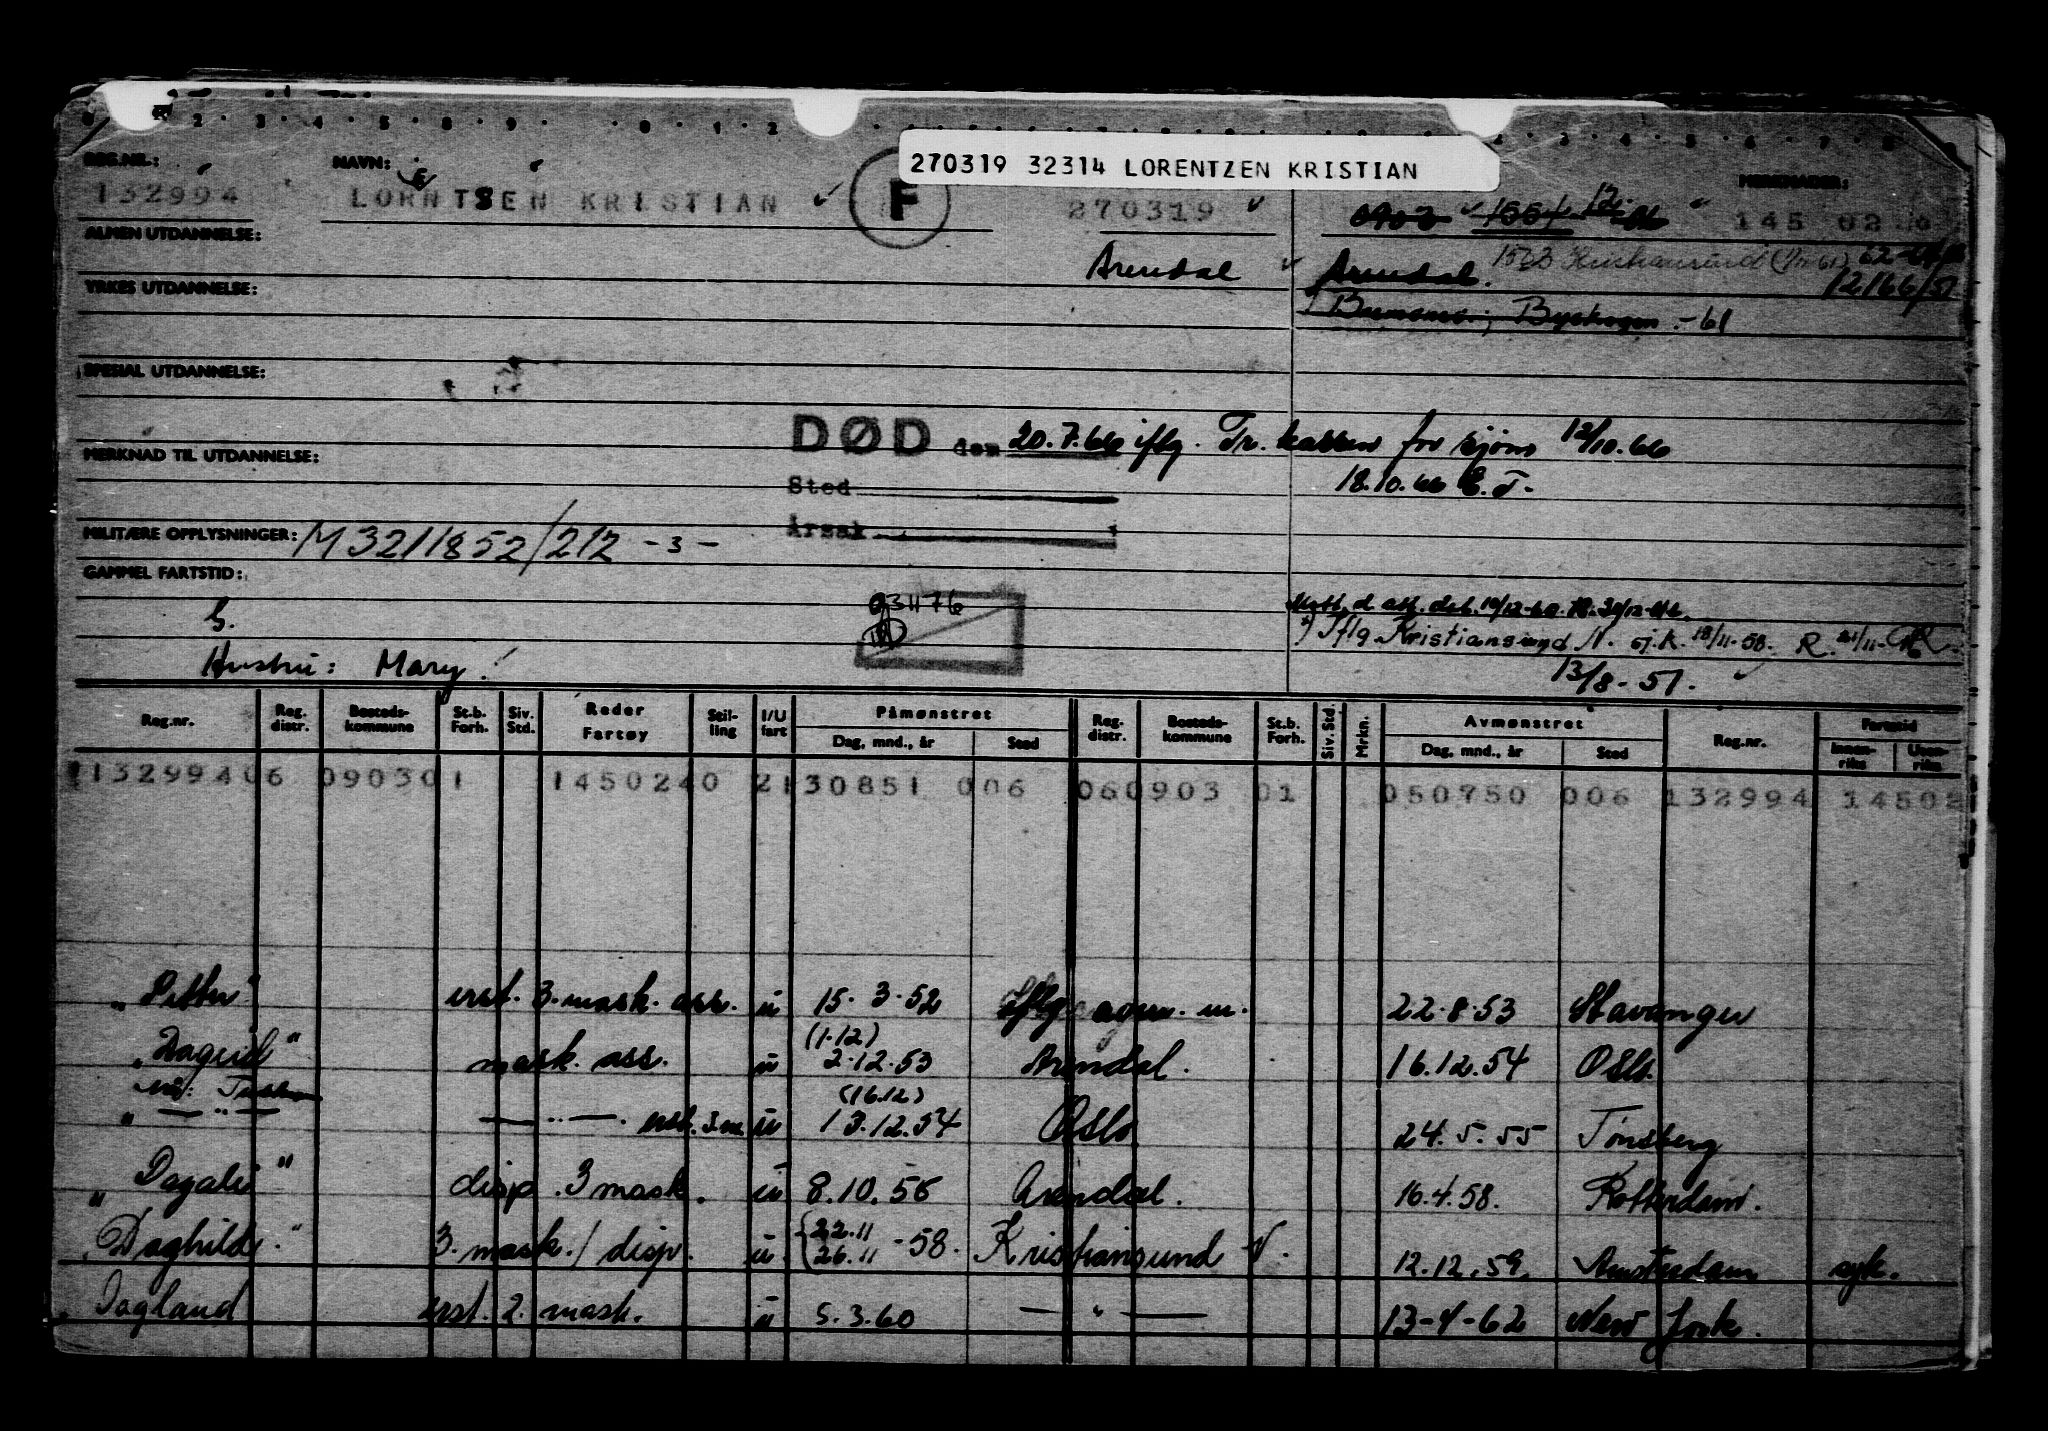 270319 32314 LORENTZEN KRISTIAN
REG.NR.: NAVN: MERKNADER:
132994 LORNTSEN KRISTIAN F 270319 145 02
ALMEN UTDANNELSE:
Arendal Arendal. 12166/51
YRKES UTDANNELSE:
-61
SPESIAL UTDANNELSE:
DØD den 20.7.66 iflg. Tr. kassen for sjøm 12/10.66
MERKNAD TIL UTDANNELSE:
Sted 18.10.66 E.T.
MILITÆRE OPPLYSNINGER: M3211852/212 -3- Årsak
GAMMEL FARTSTID:
G.
Iflg Kristiansund N. sj.k. 18/11-58. R. 21/11-
Hustru: Mary 13/8-51.
Reg.nr. Reg. distr. Bosteds-kommune St.b. Forh. Siv. Std. Reder Fartøy Stil-ling I/U fart Påmønstret Reg. distr. Bosteds-kommune St.b. Forh. Siv. Std. Mrkn. Avmønstret Reg.nr. Fartstid
Dag, mnd., år Sted Dag, mnd., år Sted Innen-riks Uten-riks
13299406 090301 1450240 2130851 006 060903 01 050750 006 132994 14502
"Petter" erst. 3. mask. ass. u 15.3.52 Iflg avm. m. 22.8.53 Stavanger
(1.12)
"Dagrid" mask. ass. u 2.12.53 Arendal. 16.12.54 Oslo.
(16.12)
" — " — — " —. erst. 3.m. u 13.12.54 Oslo 24.5.55 Tønsberg
"Dagali" disp. 3 mask. u 8.10.56 Arendal. 16.4.58. Rotterdam.
"Daghild" 3. mask./disp. u 22.11 26.11 -58. Kristiansund N. 12.12.59. Amsterdam syk.
Dagland erst. 2. mask. u 5.3.60 — " — 13-4-62 New York.